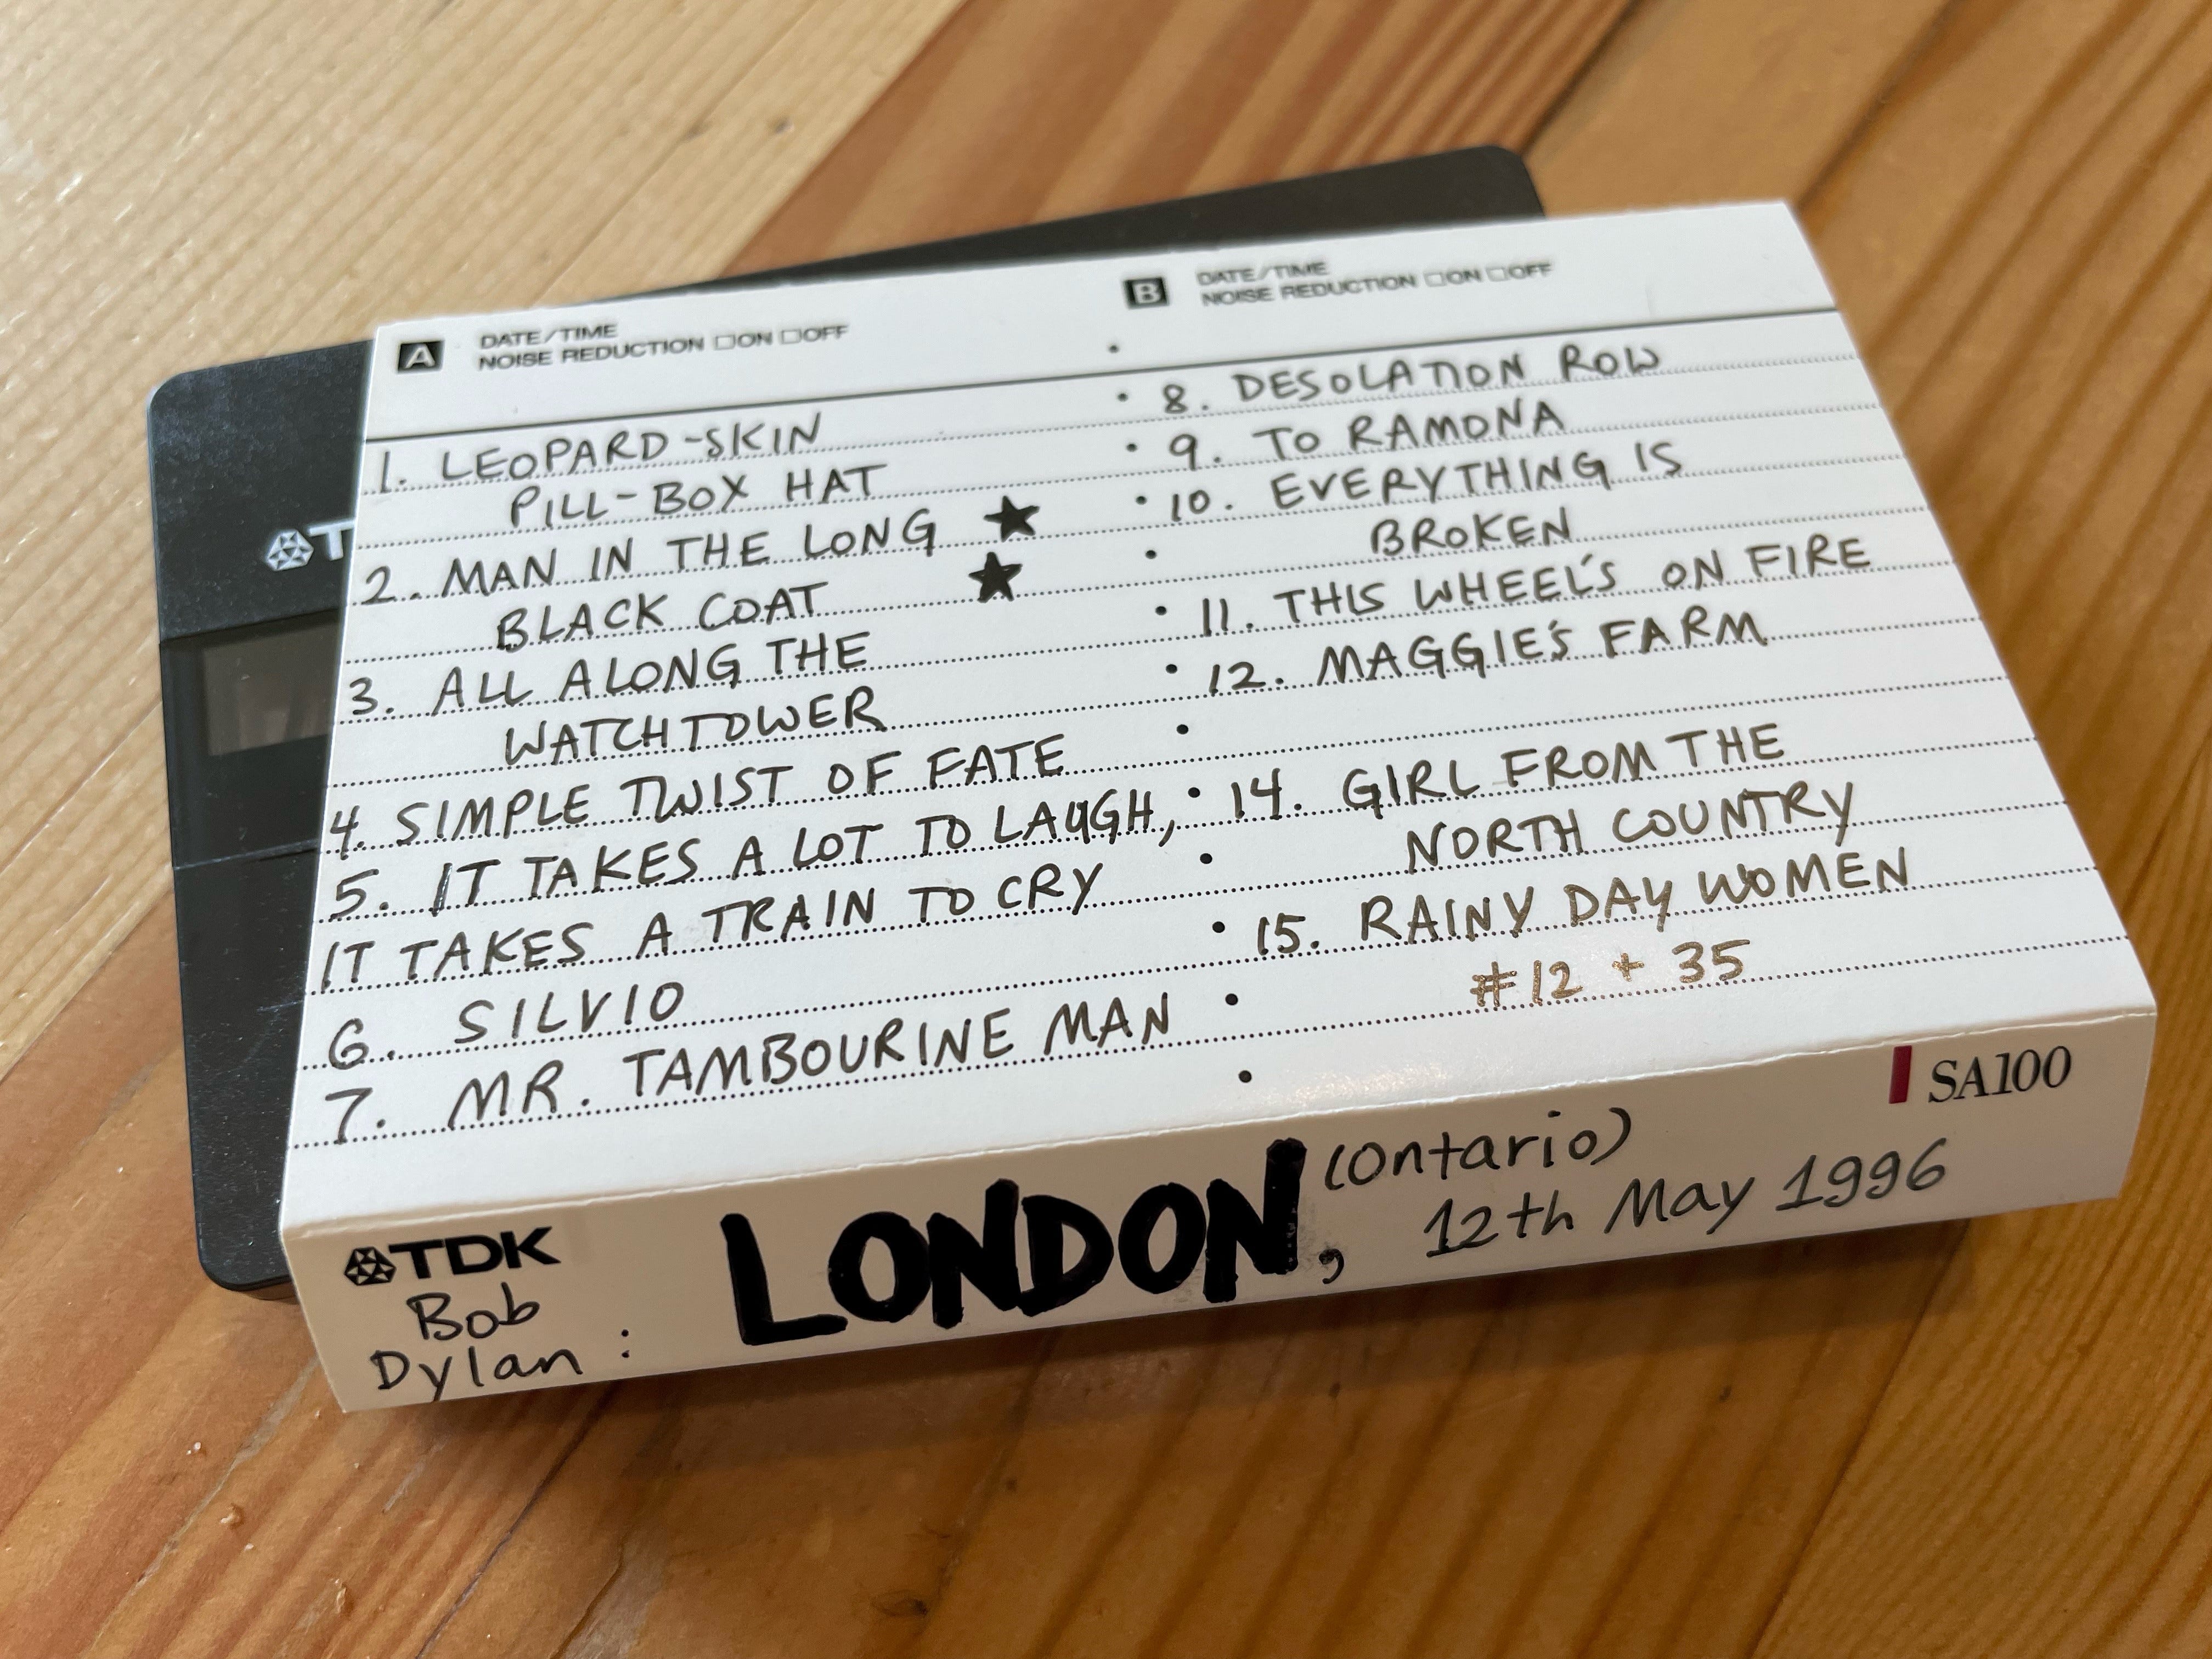 A DATE/TIME
NOISE REDUCTION ☐ON ☐OFF
1. LEOPARD-SKIN
PILL-BOX HAT
2. MAN IN THE LONG ★
BLACK COAT ★
3. ALL ALONG THE
WATCHTOWER
4. SIMPLE TWIST OF FATE
5. IT TAKES A LOT TO LAUGH,
IT TAKES A TRAIN TO CRY
6. SILVIO
7. MR. TAMBOURINE MAN
B DATE/TIME
NOISE REDUCTION ☐ON ☐OFF
8. DESOLATION ROW
9. TO RAMONA
10. EVERYTHING IS
BROKEN
11. THIS WHEEL'S ON FIRE
12. MAGGIE'S FARM
14. GIRL FROM THE
NORTH COUNTRY
15. RAINY DAY WOMEN
#12 + 35
SA100
TDK
Bob
Dylan :
LONDON, (Ontario)
12th May 1996